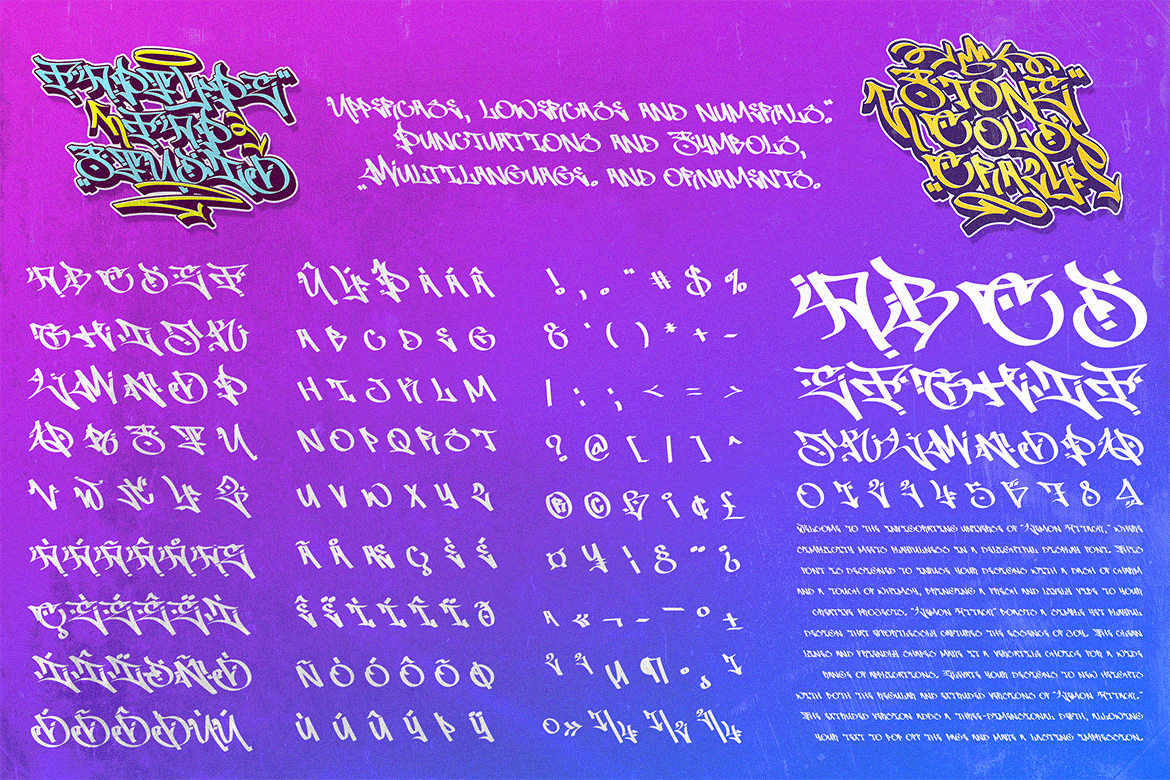 STONE
COLD
CRAZY
Uppercase, lowercase and numerals."
Punctuations and Symbols,
„Multilanguage. and ornaments.
A B C D E F
G H I J K
L M N O P
Q R S T U
V W X Y Z
À Á Ã Â Å Æ
Ç È É Ê Ë Ì
Í Î Ï Ð Ñ Ò
Ó Õ Ô Ö Ù Ú
Û Ý Þ à á â
a b c d e g
h i j k l m
n o p q r s t
u v w x y z
ã å æ ç è é
ê ë ì í î ï ð
ñ ò ó ô õ ø
ù ú û ý þ ÿ
! , . " # $ %
& ' ( ) * + -
/ : ; < = >
? @ [ / ] ^
® © i ¢ £
¤ ¥ ¦ § ¨ ¿
« ¬ - ¯ ° ±
² ³ µ ¶ ¹
º » 1/4 1/2 3/4
A B C D
E F G H I F
J K L M N O P Q
0 1 2 3 4 5 6 7 8 9
Welcome to the invigorating universe of "Lemon Attack," where
simplicity meets in a delightful display font. This
font is designed to infuse your designs with a dash of charm
and a touch of whimsy, bringing a fresh and lively vibe to your
creative projects. "Lemon Attack" boasts a simple yet
design that effortlessly captures the essence of joy. The clean
lines and friendly shapes make it a versatile choice for a wide
range of applications. Elevate your designs to new heights
with both the regular and extruded versions of "Lemon Attack."
The extruded version adds a three-dimensional depth, allowing
your text to pop off the page and make a lasting impression.